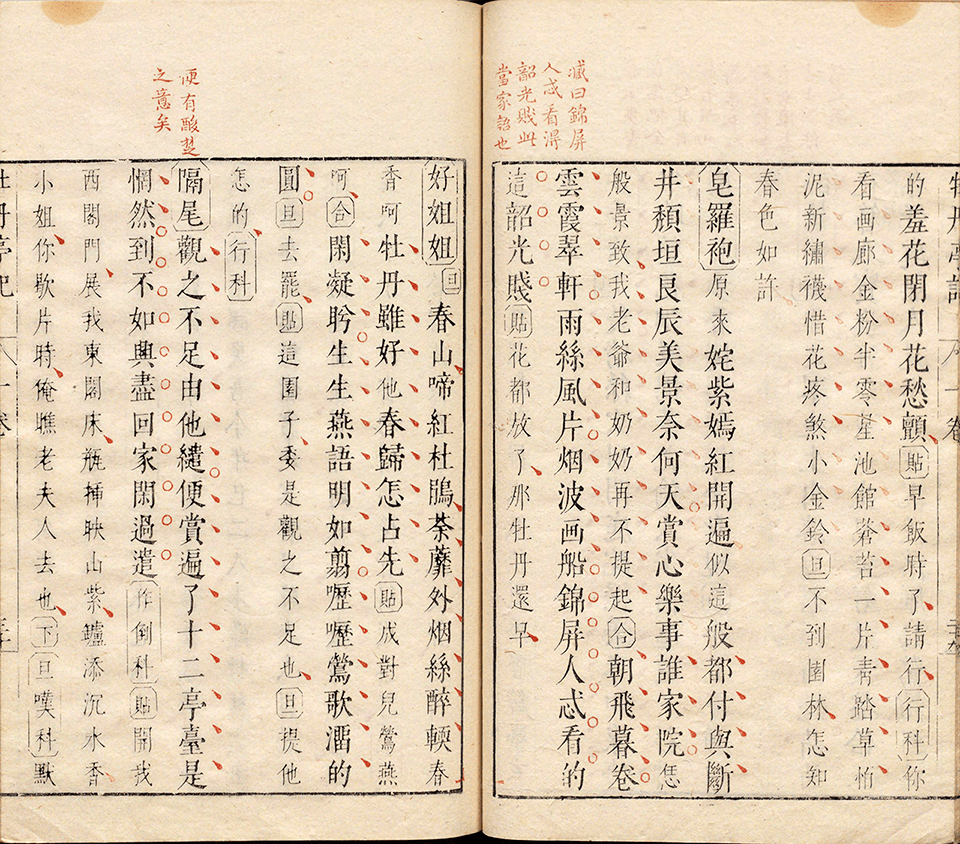 臧曰錦屏
人忒看得
韶光賤此
當家語也
牡丹亭記
一卷
的羞花閉月花愁顫貼早飯時了請行行科你
看画廊金粉半零星池館蒼苔一片青踏草怕
泥新繡襪惜花疼煞小金鈴旦不到園林怎知
春色如許
皂羅袍原來姹紫嫣紅開遍似這般都付與斷
井頹垣良辰美景奈何天賞心樂事誰家院恁
般景致我老爺和奶奶再不提起合朝飛暮卷
雲霞翠軒雨絲風片烟波画船錦屏人忒看的
這韶光賤貼花都放了那牡丹還早
便有酸楚
之意矣
好姐姐旦春山啼紅杜鵑荼蘼外烟絲醉輭春
香呵牡丹雖好他春歸怎占先貼成對兒鶯燕
呵合閑凝盻生生燕語明如翦嚦嚦鶯歌溜的
圓旦去罷貼這園子委是觀之不足也旦提他
怎的行科
隔尾觀之不足由他繾便賞遍了十二亭臺是
惘然到不如興盡回家閑過遣作倒科貼開我
西閣門展我東閣床瓶揷映山紫鑪添沉水香
小姐你歇片時俺瞧老夫人去也下旦嘆科默
牡丹亭記
一卷